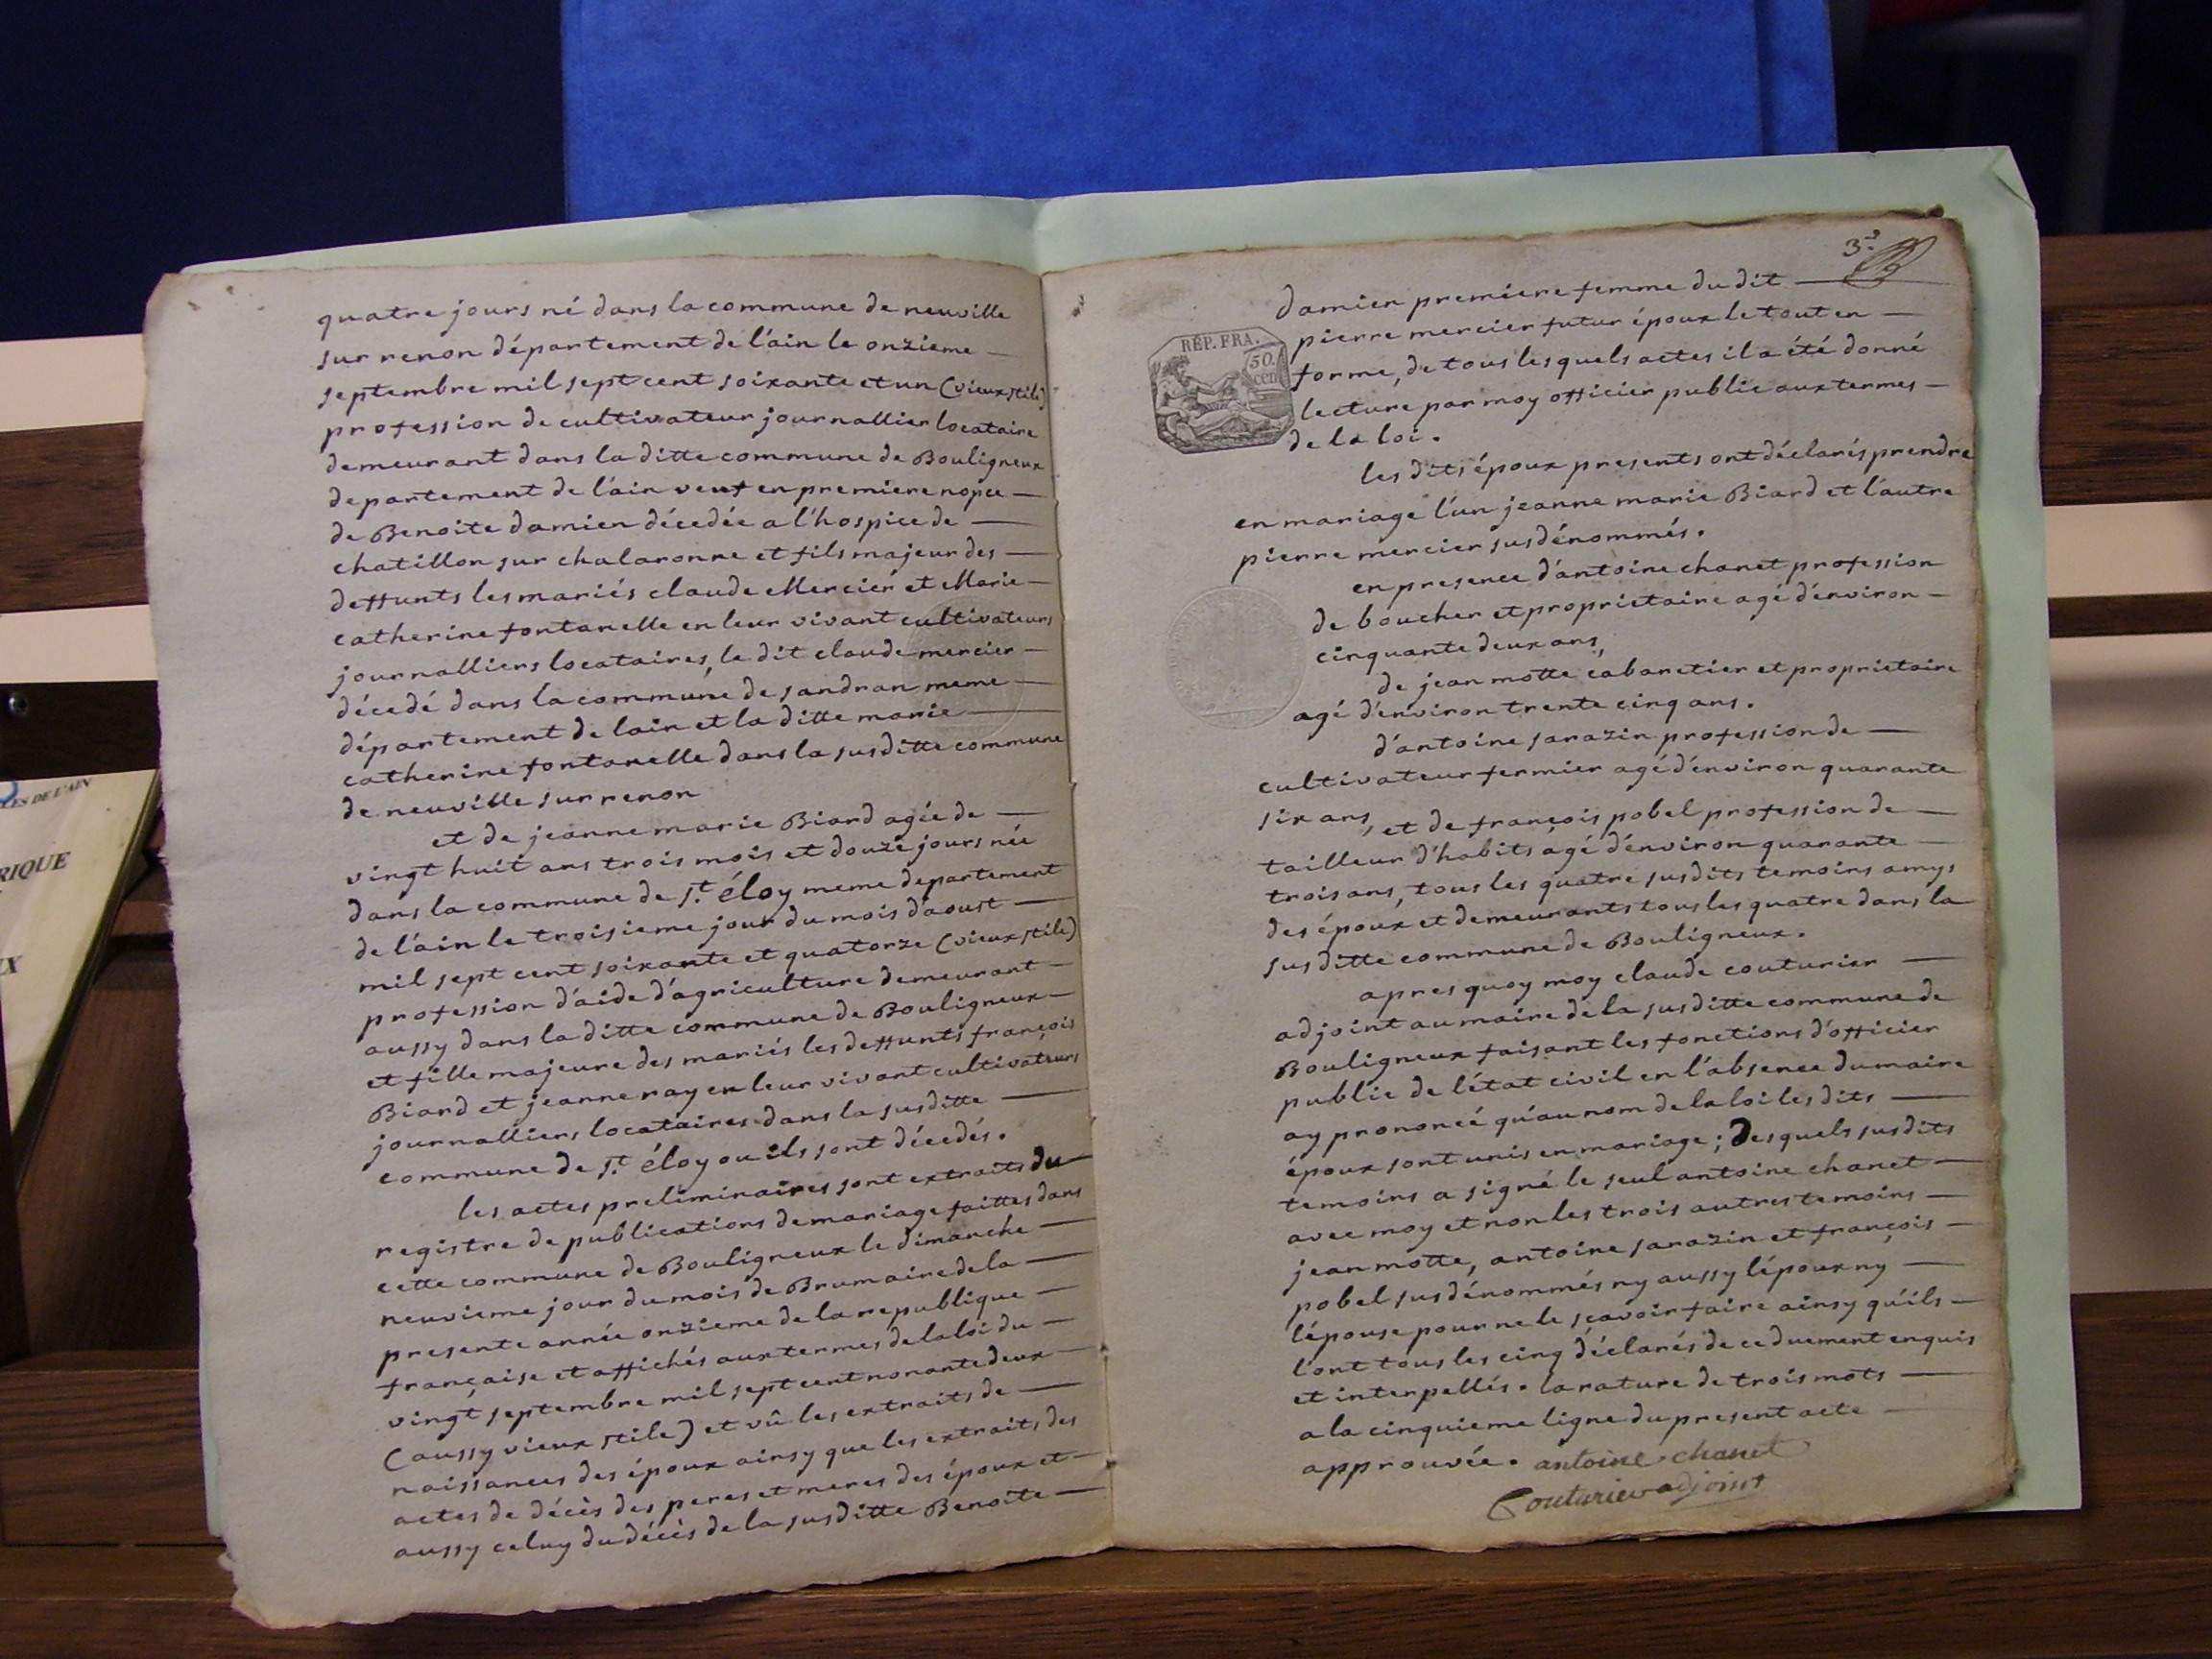 quatre jours né dans la commune de neuville
sur renon département de l'ain le onzieme
septembre mil sept cent soixante et un (vieux stile)
profession de cultivateur journallier locataire
demeurant dans la ditte commune de Bouligneux
departement de l'ain veuf en premiere nopce
de Benoite damien décedée a l'hospice de
chatillon sur chalaronne et fils majeur des
deffunts les mariés claude Mercier et Marie
catherine fontanelle en leur vivant cultivateurs
journalliers locataires, le dit claude mercier
décedé dans la commune de sandran meme
département de lain et la ditte marie
catherine fontanelle dans la susditte commune
de neuville sur renon
et de jeanne marie Biard agée de
vingt huit ans trois mois et douze jours née
dans la commune de st. éloy meme departement
de l'ain le troisieme jour du mois d'aoust
mil sept cent soixante et quatorze (vieux stile)
profession d'aide d'agriculture demeurant
aussy dans la ditte commune de Bouligneux
et fille majeure des mariés les deffunts françois
Biard et jeanne ray en leur vivant cultivateurs
journalliers locataires dans la susditte
commune de st. éloy ou ils sont décedés.
les actes preliminaires sont extraits du
registre de publications de mariage faittes dans
cette commune de Bouligneux le dimanche
neuvieme jour du mois de Brumaire de la
presente année onzieme de la republique
française et affichés aux termes de la loi du
vingt septembre mil sept cent nonante deux
(aussy vieux stile) et vû les extraits de
naissances des époux ainsy que les extraits des
actes de décès des peres et meres des époux et
aussy celuy du décès de la susditte Benoite
3e.
damien premiere femme du dit
pierre mercier futur époux le tout en
forme, de tous lesquels actes il a été donné
lecture par moy officier public aux termes
de la loi.
RÉP. FRA.
50.
cen
les dits époux presents ont déclarés prendre
en mariage l'un jeanne marie Biard et l'autre
pierre mercier susdénommés.
en presence d'antoine chanet profession
de boucher et proprietaire agé d'énviron
cinquante deux ans,
de jean motte cabaretier et proprietaire
agé d'énviron trente cinq ans.
d'antoine sarazin profession de
cultivateur fermier agé d'énviron quarante
six ans, et de françois pobel profession de
tailleur d'habits agé d'énviron quarante
trois ans, tous les quatre susdits temoins amys
des époux et demeurants tous les quatre dans la
susditte commune de Bouligneux.
apres quoy moy claude couturier
adjoint au maire de la susditte commune de
Bouligneux faisant les fonctions d'officier
public de l'état civil en l'absence du maire
ay prononcé qu'au nom de la loi les dits
époux sont unis en mariage; Desquels susdits
temoins a signé le seul antoine chanet
avec moy et non les trois autres temoins
jean motte, antoine sarazin et françois
pobel susdénommés ny aussy l'époux ny
l'épouse pour ne le sçavoir faire ainsy qu'ils
l'ont tous les cinq déclarés de ce duement enquis
et interpellés. la rature de trois mots
a la cinquieme ligne du present acte
approuvée. antoine chanet
Couturier adjoint
LES DE L'AIN
RIQUE
X